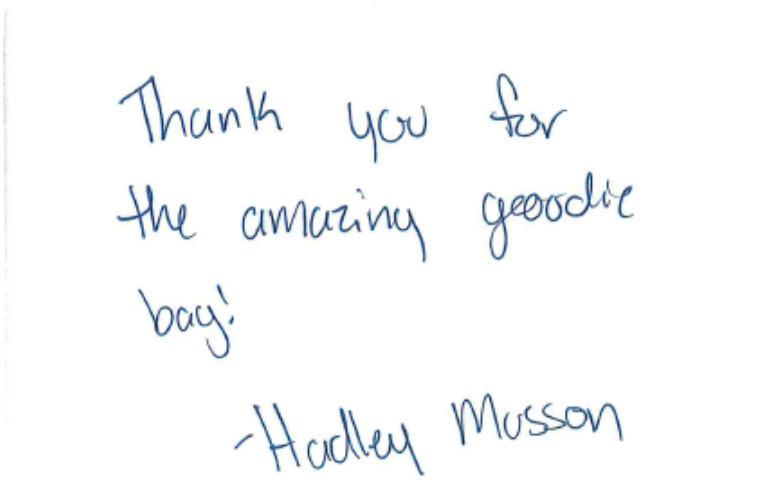 Thank you for
the amazing geoodie
bag!
-Hadley Musson